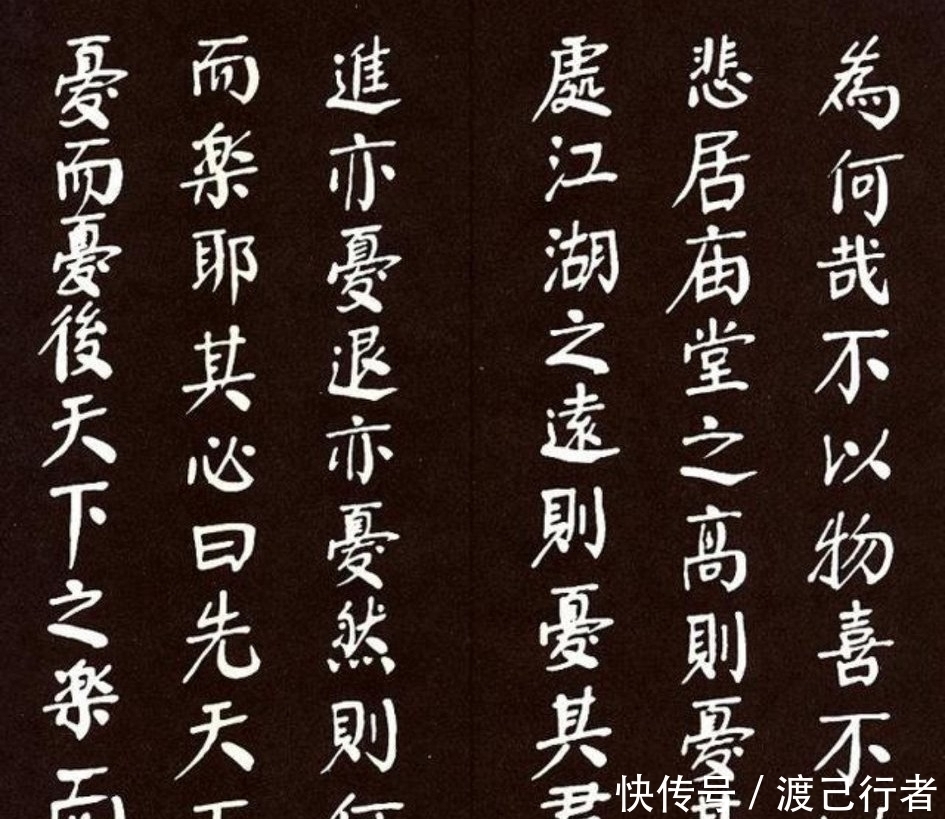 為何哉不以物喜不
悲居庙堂之高則憂其
處江湖之遠則憂其君
進亦憂退亦憂然則何
而楽耶其必曰先天下
憂而憂後天下之楽而
快传号 / 渡己行者